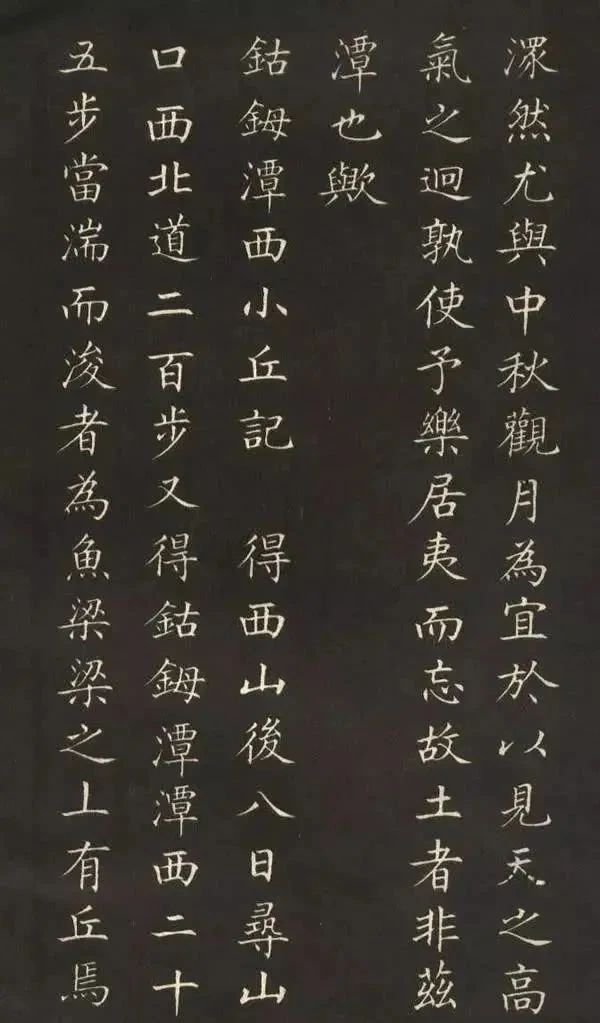 潀然尤與中秋觀月為宜於以見天之高
氣之迥孰使予樂居夷而忘故土者非茲
潭也歟
鈷鉧潭西小丘記　得西山後八日尋山
口西北道二百步又得鈷鉧潭潭西二十
五步當湍而浚者為魚梁梁之上有丘焉